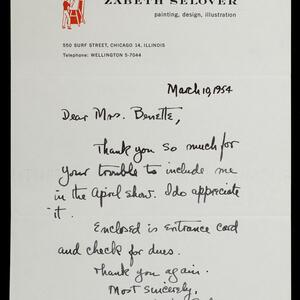 ZABETH SELOVER
painting, design, illustration
550 SURF STREET, CHICAGO 14, ILLINOIS
Telephone: WELLINGTON 5-7044
March 10, 1954
Dear Mrs. Benette,
Thank you so much for
your trouble to include me
in the April show. I do appreciate
it.
Enclosed is entrance card
and check for dues.
Thank you again.
Most sincerely,